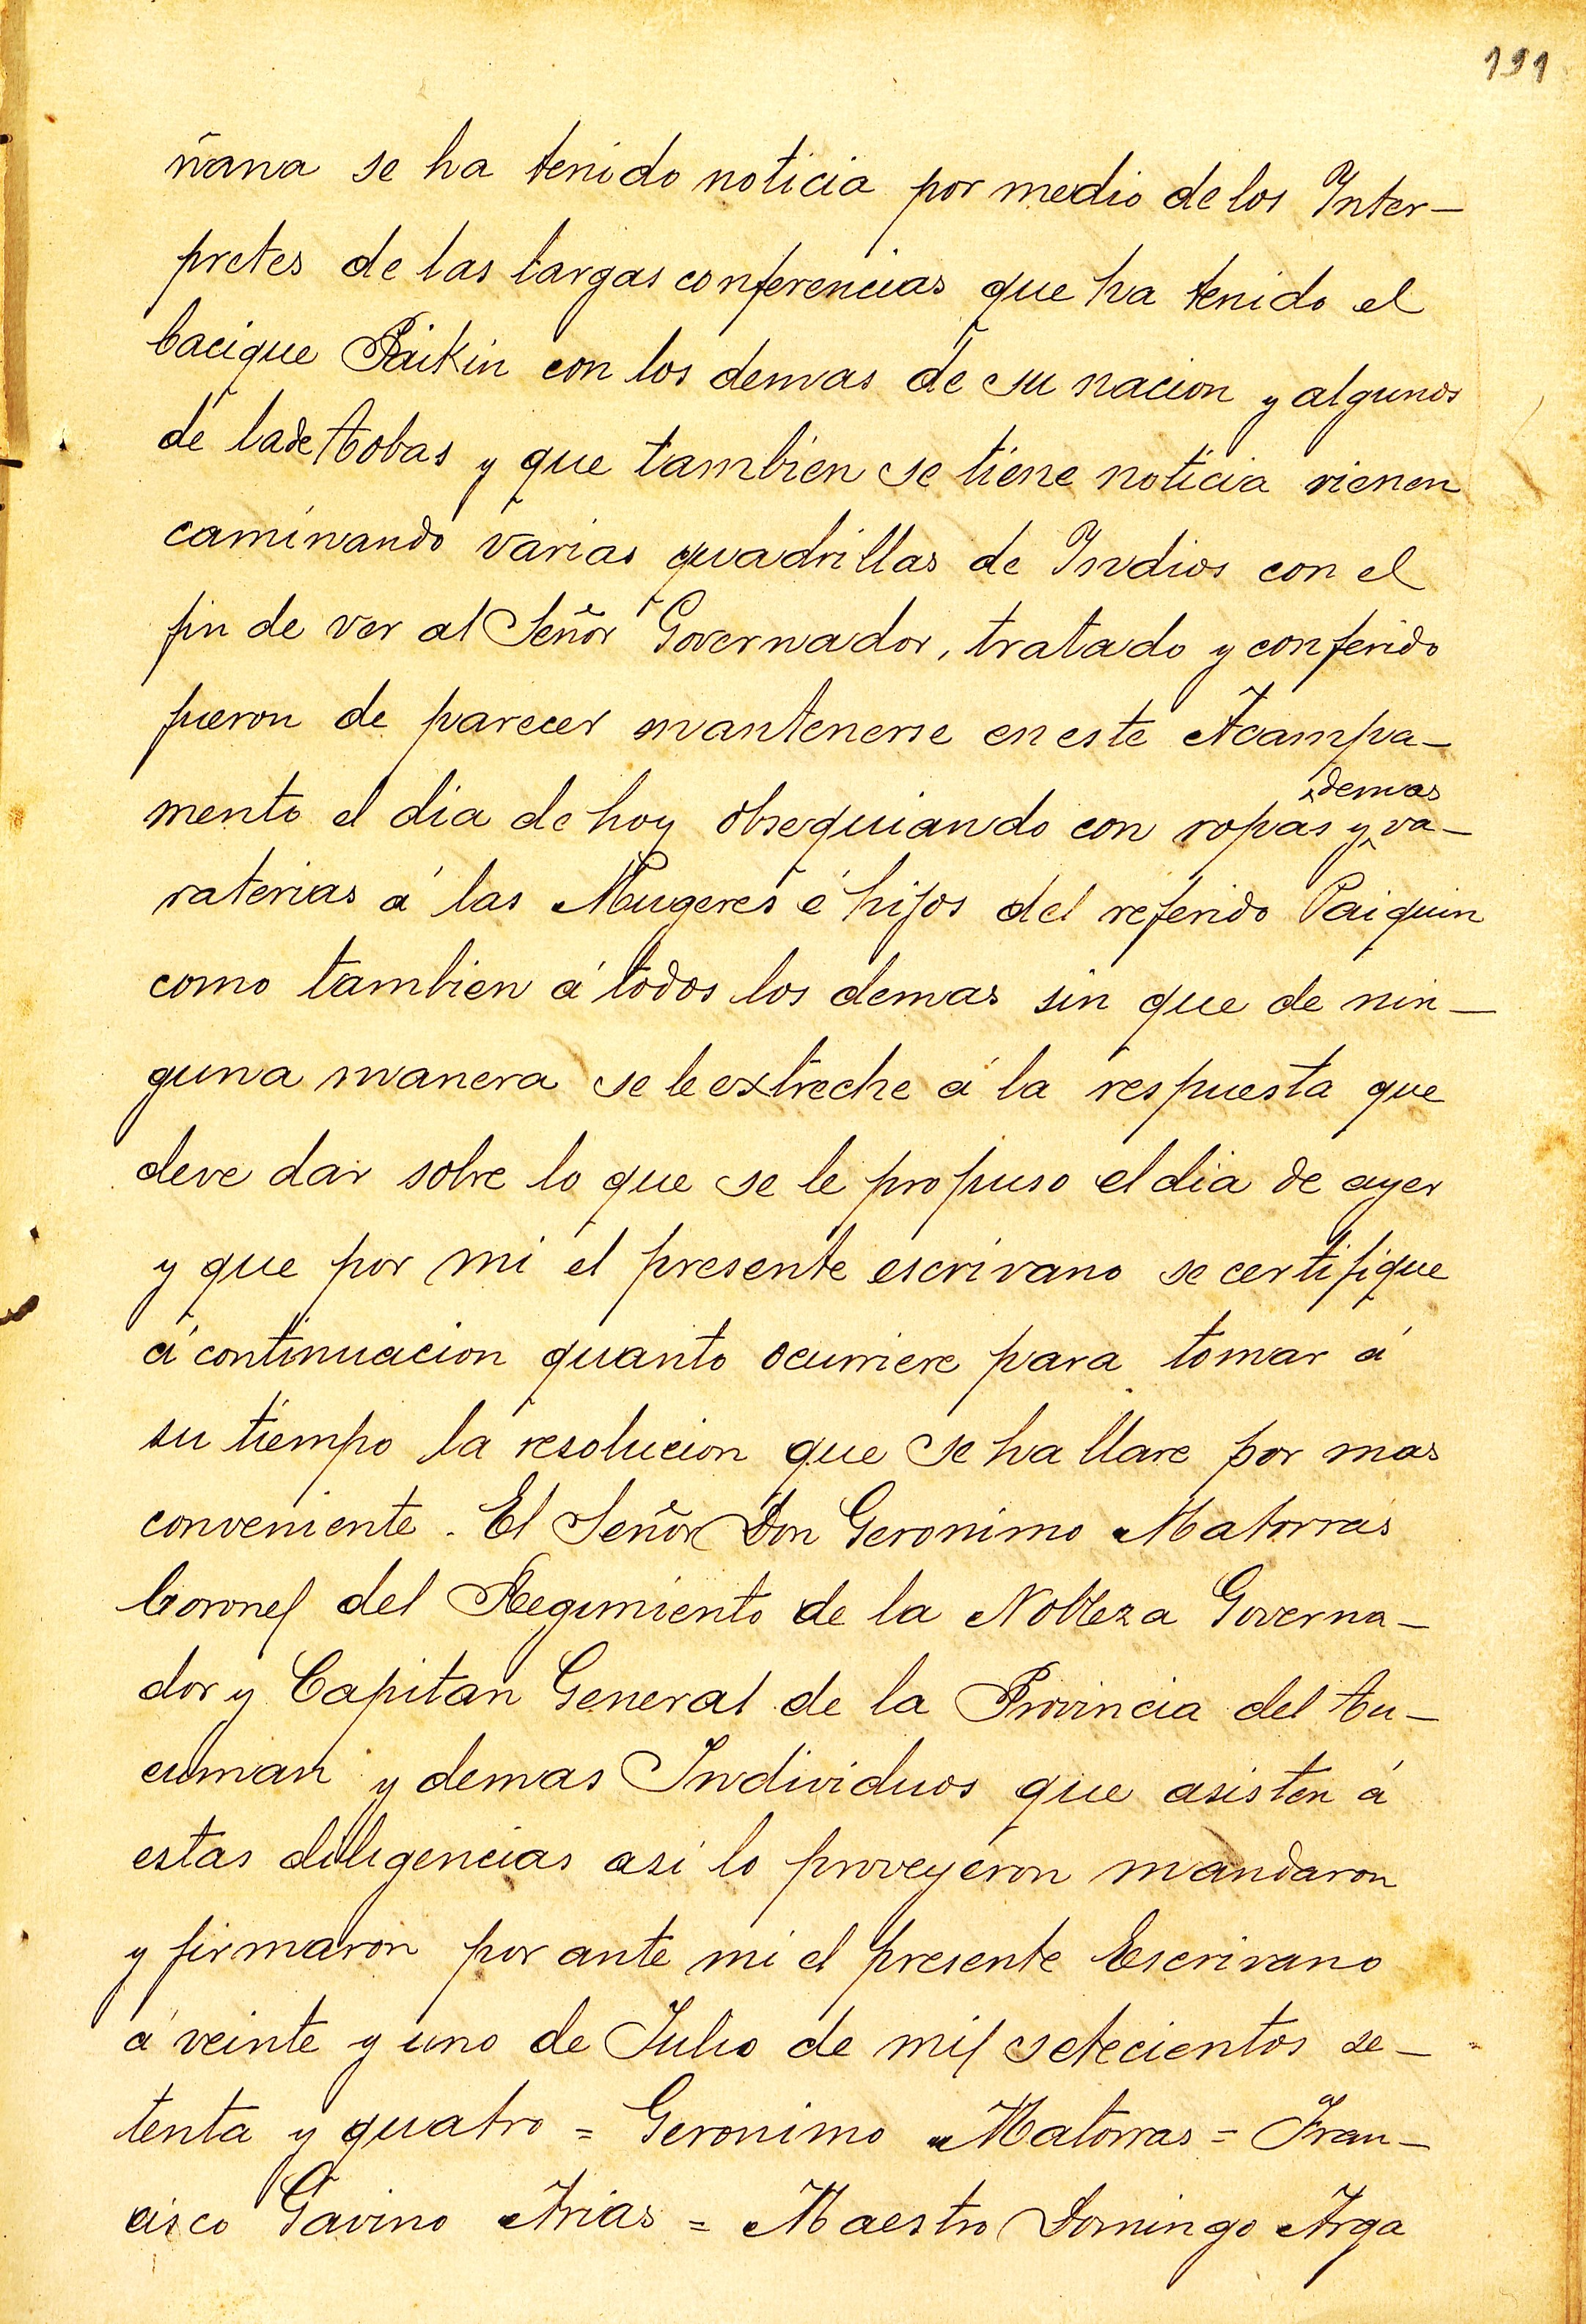 191
ñana se ha tenido noticia por medio de los Inter-
pretes de las largas conferencias que ha tenido el
Cacique Paikin con los demas de su nacion y algunos
de la de Tobas y que tambien se tiene noticia vienen
caminando varias quadrillas de Indios con el
fin de ver al Señor Governador, tratado y conferido
fueron de parecer mantenerse en este Acampa-
demas
mento el dia de hoy obsequiando con ropas y va-
raterias á las Mugeres é hijos del referido Paiquin
como tambien á todos los demas sin que de nin-
guna manera se le extreche á la respuesta que
deve dar sobre lo que se le propuso el dia de ayer
y que por mi el presente escrivano se certifique
á continuacion quanto ocurriere para tomar á
su tiempo la resolucion que se hallare por mas
conveniente. El Señor Don Geronimo Matorras
Coronel del Regimiento de la Nobleza Governa-
dor y Capitan General de la Provincia del Tu-
cuman y demas Individuos que asisten á
estas diligencias asi lo proveyeron mandaron
y firmaron por ante mi el presente Escrivano
á veinte y uno de Julio de mil setecientos se-
tenta y quatro = Geronimo Matorras = Fran-
cisco Gavino Arias = Maestro Domingo Arga